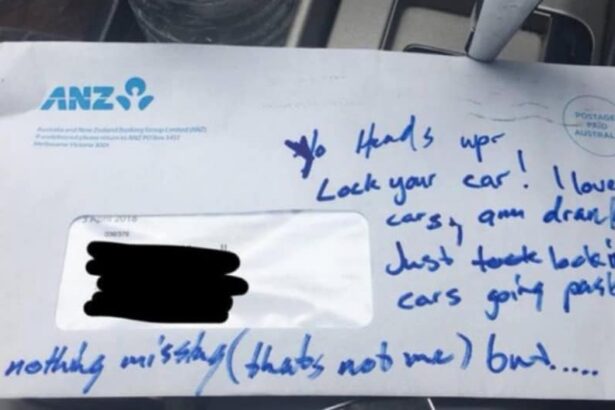 ANZ
Australia and New Zealand Banking Group Limited (ANZ)
If undelivered please return to ANZ PO Box 5457
Melbourne Victoria 3001
POSTAGE
PAID
AUSTRALIA
3 April 2018
Yo Heads up
Lock your car! I love
cars, am drunk
Just took lookin
cars going past
nothing missing (thats not me) but.....